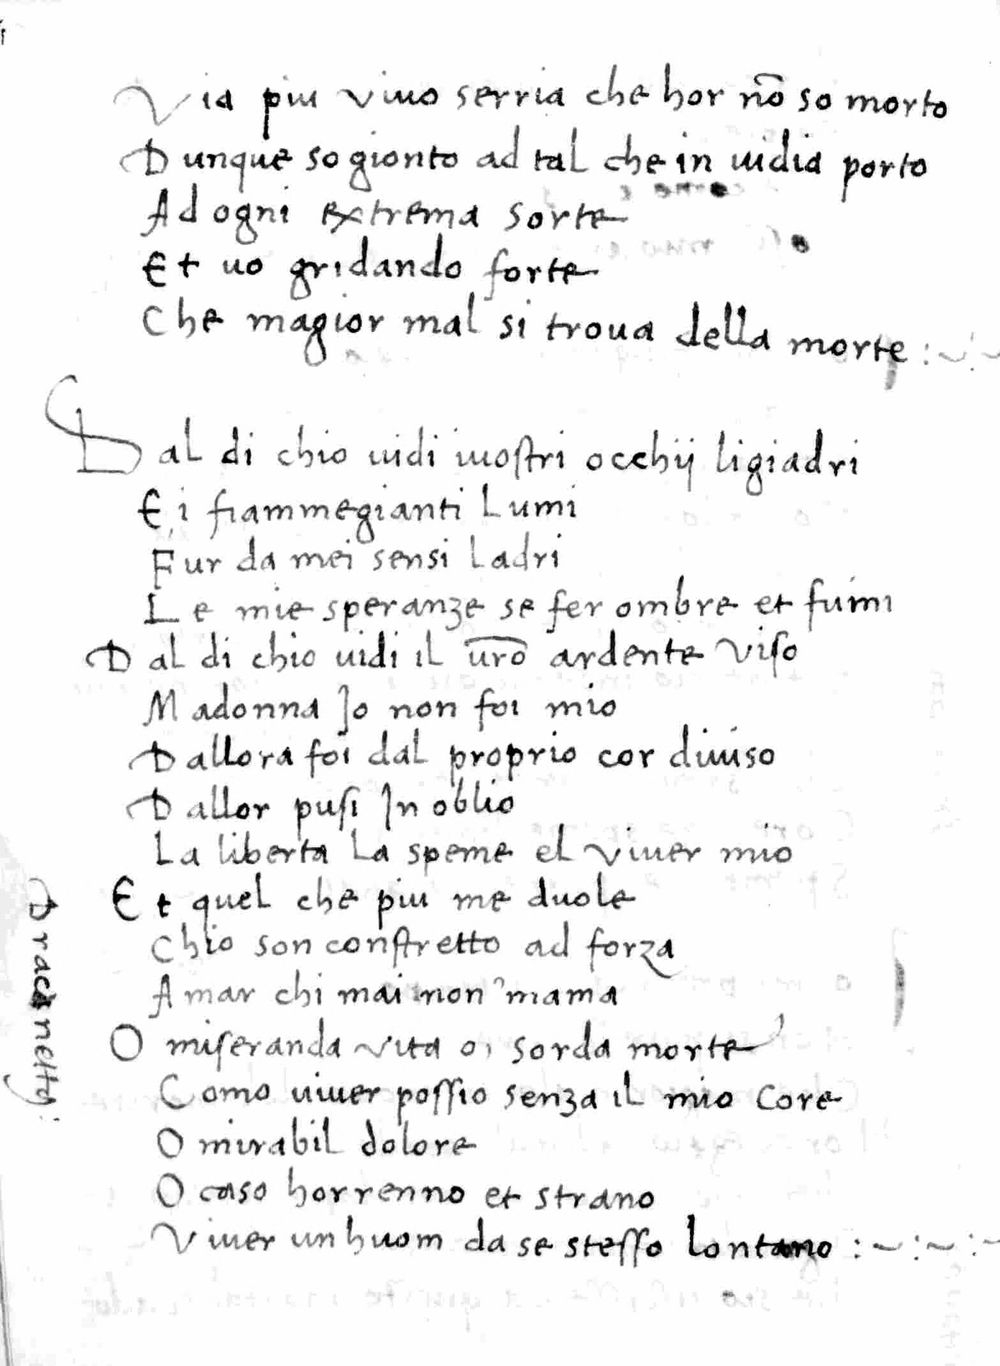 Via piu viuo serria che hor nõ so morto
Dunque so gionto ad tal che in uidia porto
Ad ogni extrema sorte
Et uo gridando forte
Che magior mal si troua della morte :~:~
Dal di chio uidi iuostri occhij ligiadri
E i fiammegianti Lumi
Fur da mei sensi Ladri
Le mie speranze se fer ombre et fumi
Dal di chio uidi il ur̃o ardente viso
Madonna Io non foi mio
Dallora foi dal proprio cor diuiso
Dallor pusi In oblio
La liberta La speme el viuer mio
Et quel che piu me duole
Chio son constretto ad forza
Amar chi mai non mama
O miseranda vita o, sorda morte
Como uiuer possio senza il mio Core
O mirabil dolore
O caso horrenno et strano
Viuer un huom da se stesso lontano :~:~:~